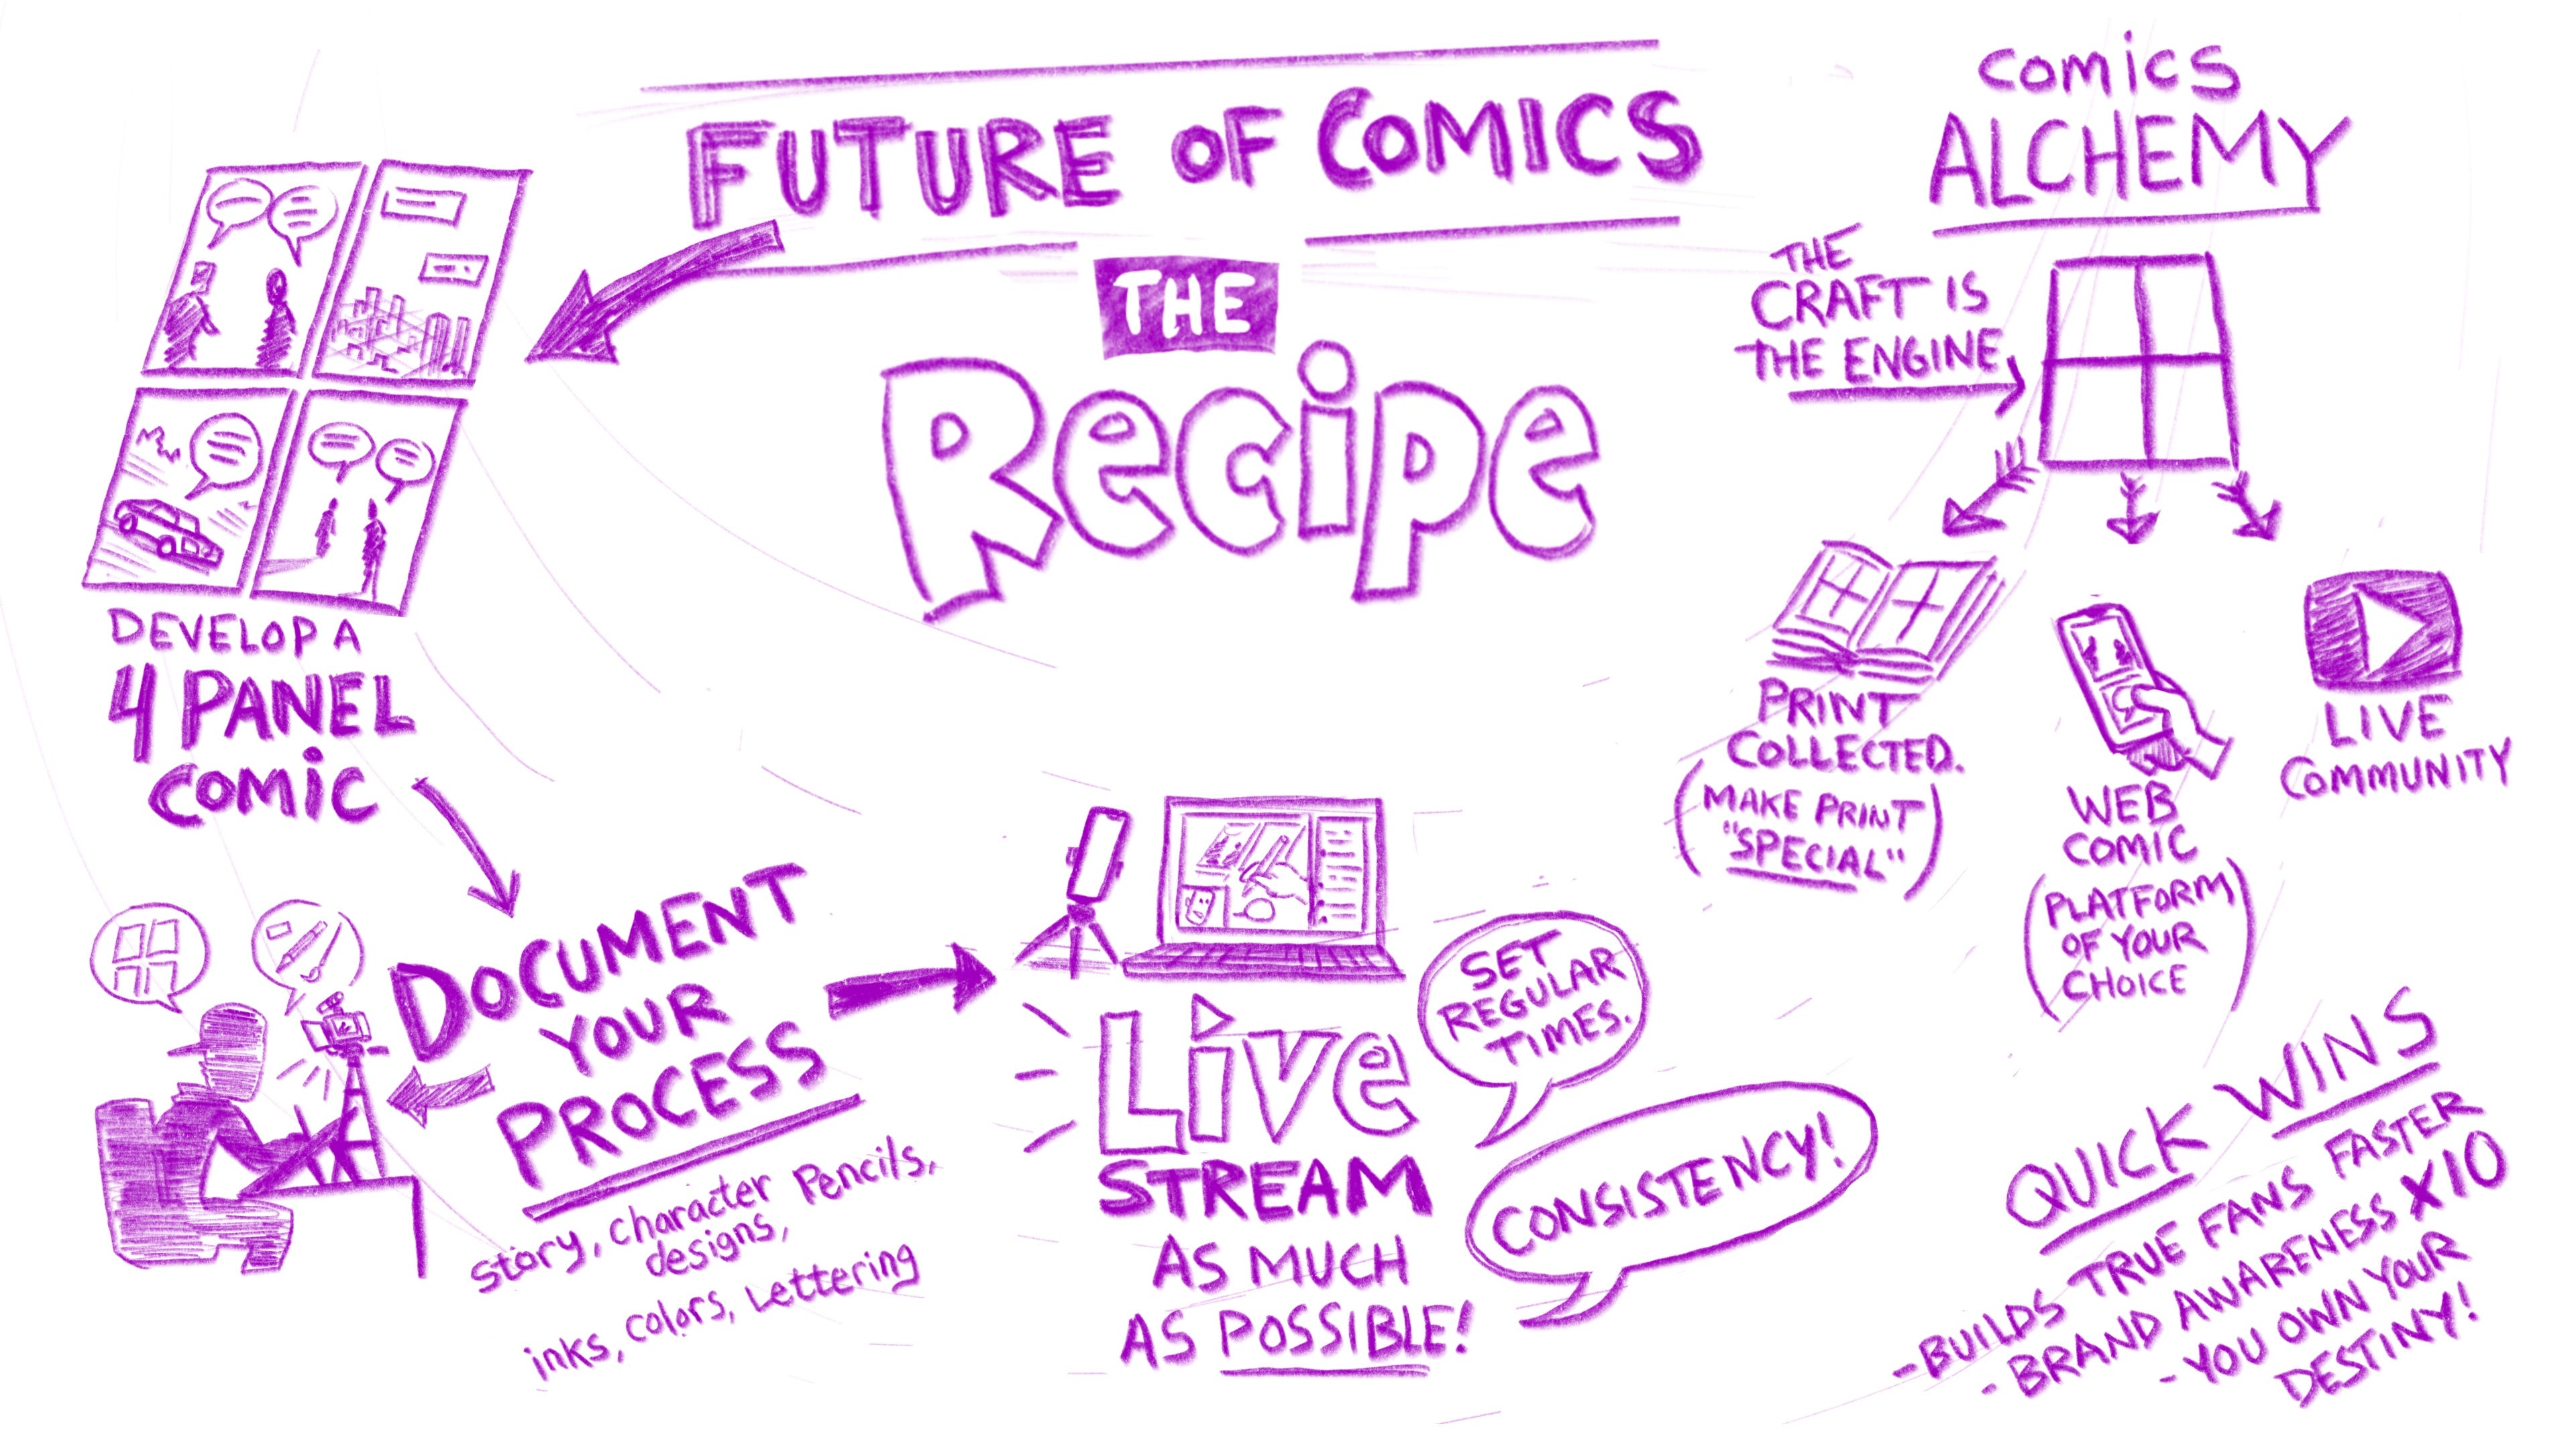 FUTURE OF COMICS
THE
Recipe
DEVELOP A
4 PANEL
COMIC
DOCUMENT
YOUR
PROCESS
story, character Pencils,
designs,
inks, colors, Lettering
Live
STREAM
AS MUCH
AS POSSIBLE!
SET
REGULAR
TIMES.
CONSISTENCY!
COMICS
ALCHEMY
THE
CRAFT IS
THE ENGINE
PRINT
COLLECTED.
(MAKE PRINT
"SPECIAL")
WEB
COMIC
(PLATFORM
OF YOUR
CHOICE)
LIVE
COMMUNITY
QUICK WINS
-BUILDS TRUE FANS FASTER
-BRAND AWARENESS X10
-YOU OWN YOUR
DESTINY!